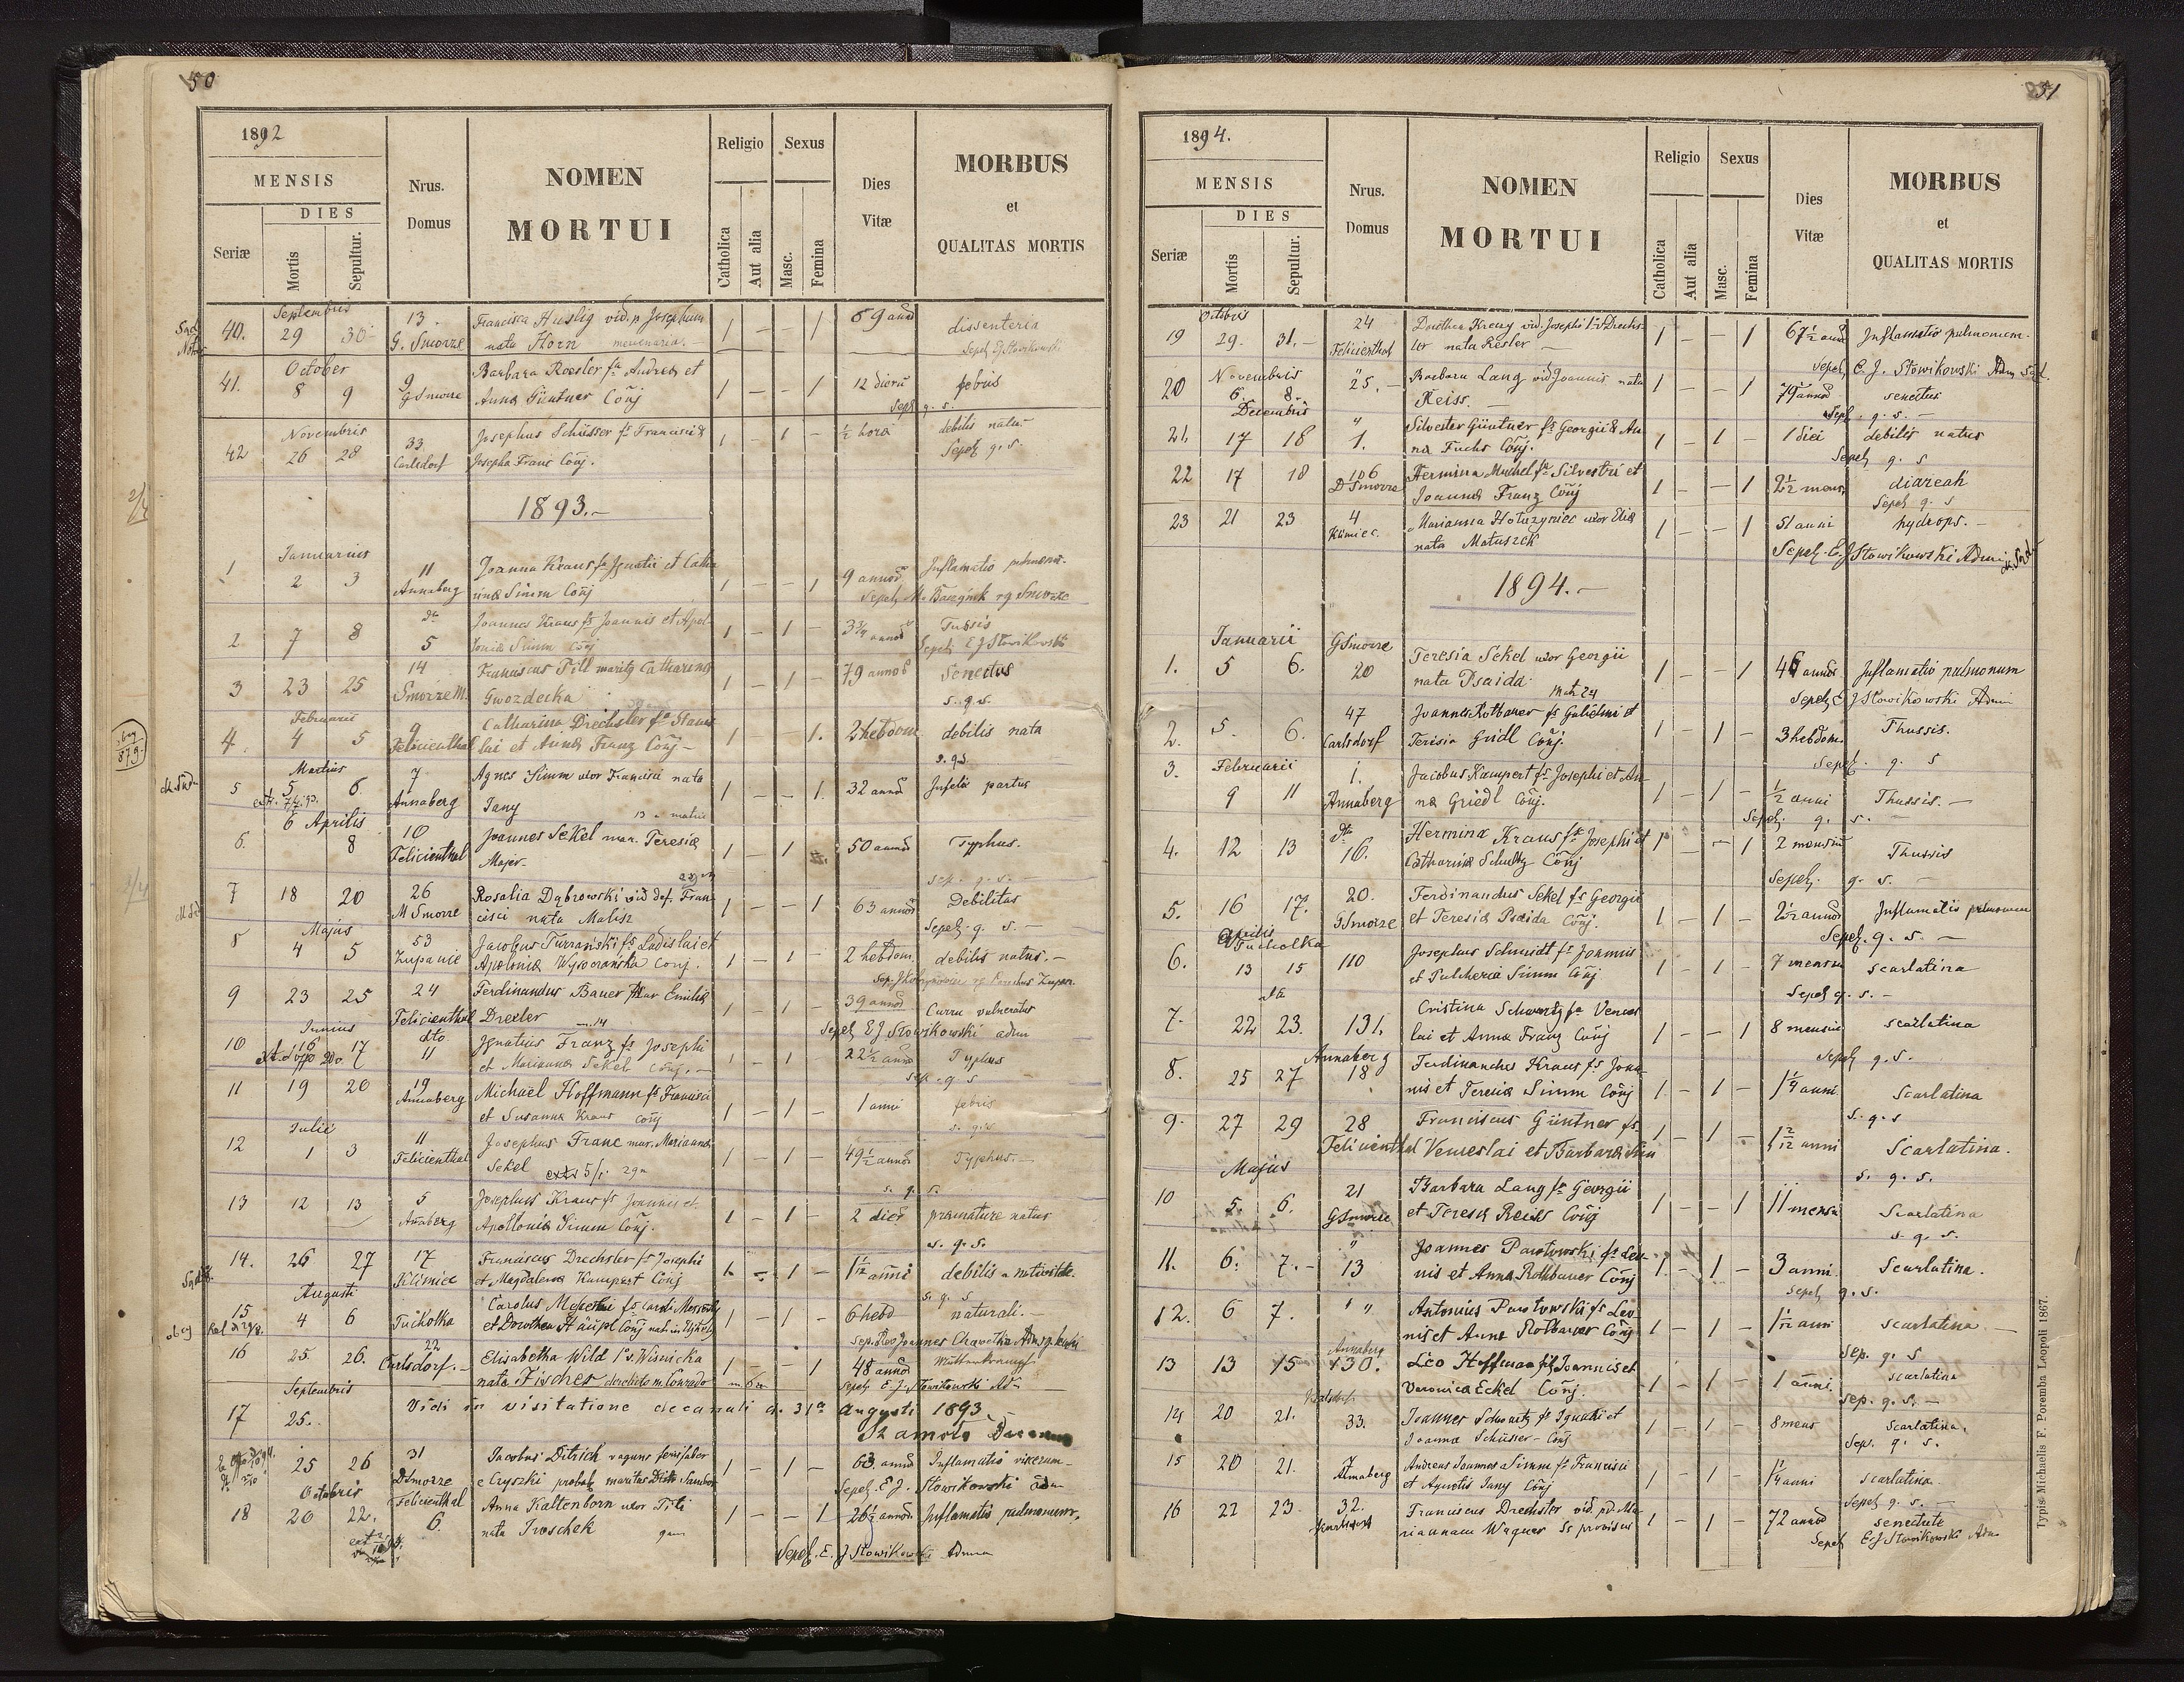 50
1892
MENSIS
DIES
Seriæ
Mortis
Sepultur.
Nrus.
Domus
NOMEN
MORTUI
Religio
Sexus
Catholica
Aut alia
Masc.
Femina
Dies
Vitæ
MORBUS
et
QUALITAS MORTIS
Septembris
40. 29 30 13. G. Smorze Francisca Huslig vid. p. Josephum 1 – – 1 69 annor dissenteria
nata Horn
October
41. 8 9 9 GSmorze Barbara Roesler fa Andreæ et 1 – – 1 12 dierū febris
Anna Güntner Conj
Sepel q. s.
Novembris
42 26 28 33 Carlsdorf Josephus Schüsser fs Francisci & 1 – 1 – ½ hora debilis natu-
Josepha Franc Conj.
Sepel q. s.
1893.-
Januarius
1 2 3 11 Annaberg Joanna Kraus fa Ignatii et Catha 1 – – 1 9 annor Inflamatio pulmonu-
rina Simm Conj
2 7 8 dto 5 Joannes Kraus fs Joannis et Apol- 1 – 1 – 3¾ annor Tussis
lonia Simm Conj
Sepeli EJ Słowikowski
3 23 25 14 Smorze M. Franciscus Till marity Catharina 1 – 1 – 79 annor Senectus
Gwozdecka
s. q. s.
Februarii
4. 4 5 9 Felicienthal Catharina Drechsler fa Stanis 1 – – 1. 2 hebdom debilis nata
lai et Anna Franz Conj –
s. q. s.
Martius
5 5 6. 7 Annaberg Agnes Simm uxor Francisci nata 1 – – 1. 32 annor Infelix partus
Jany
Aprilis
6. 6 8 10 Felicienthal Joannes Sekel mar. Teresiæ 1 – 1 50 annor Typhus.
Majer
sep. q. s. –
7 18 20 26 M Smorze Rosalia Dąbrowski vid def. Fran 1 – – 1 63 annor Debilitas
cisci nata Malisz
Sepel. q. s. –
Majus
8 4 5 53 Zupanie Jacobus Turzański fs Ladislai et 1 – 1 – 2 hebdom. debilis natus. –
Apolonia Wysoczańska Conj.
9 23 25 24 Felicienthal Ferdinandus Bauer mar Emiliæ 1 – 1 – 39 annor Curru vulneratus
Drexler
Sepel EJ Słowikowski adm
Junius
10 16 17 dto 11 Ignatius Franz fs Josephi 1 – 1 – 22½ annor Typhus
et Marianna Sekel Conj. –
sep. q. s
11 19 20 19 Annaberg Michaël Hoffmann fs Francisci 1 – 1 – 1 anni febris
et Susanna Kraus conj
s. q. s
Julii
12 1 3 11 Felicienthal Josephus Franc mar. Marianna 1 – 1 – 49½ annor Typhus. –
Sekel
s. q. s.
13 12 13 5 Annberg Josephus Kraus fs Joannis et 1 – 1 – 2 dier præmature natus
Apollonia Simm Conj.
s. q. s.
14. 26 27 17 Klimiec Franciscus Drechsler fs Josephi 1. – 1 – 1 1/12 anni debilis a nativitate.
et Magdalena Kampert Conj
s. q. s
Augusti
15 4 6 Tucholka Carolus fs Caroli 1 – 1 – 6 hebd naturali. –
et Dorothea Häupl Conj
16 25. 26. 22 Carlsdorf. – Elisabetha Wild 1° v. Wisnicka 1 – – 1 48 annor
nata Fischer derelicto m. Conrado
Sepel E. J. Słowikowski Ad-
Septembris
17 25. Vidi in visitatione decanali d. 31a Augusti 1893
25 26 31 DSmorze Jacobus Ditrich vagans 1 – 1 – 63 annor Inflamatio viscerum –
Sepel. E. J. Słowikowski adm
Octobris
18 20 22. Felicienthal 6. Anna Kaltenborn uxor Titi 1 – – 1 26½ annor Inflamatio pulmonum.
nata Troschek
Sepel. E. J Słowikowski Admin
51
1894.
MENSIS
DIES
Seriæ
Mortis
Sepultur.
Nrus.
Domus
NOMEN
MORTUI
Religio
Sexus
Catholica
Aut alia
Masc.
Femina
Dies
Vitæ
MORBUS
et
QUALITAS MORTIS
Octobris
19 29. 31. – 24 Felicienthal Dorothea Kreuz vid. Josephi 1° v Drechs- 1 – – 1 67½ annor Inflamatio pulmonum.
ler nata Resler –
Sepel. E. J. Słowikowski Adm
Novembris
20 6. 8. " 25. – Barbara Lang vid Joannis nata 1 – – 1 79 annor senectus
Reiss. –
Sepel. q. s. –
Decembris
21. 17 18 " 1. Silvester Güntner fs Georgii & An- 1 – 1 – 1 diei debilis natus
na Fuchs Conj.
Sepel q. s
22 17 18 106 D Smorze Hermina Muchel fa Silvestri et 1 – – 1 2½ mens. diareah
Joanna Franz Conj
Sepel q. s
23 21 23 4 Klimiec. Marianna Hołuzyniec uxor Eliæ 1 – – 1 51 anni hydrops. –
nata Matuszek
Sepel. E. J Słowikowski Admi
1894. –
Januarii
1. 5 6. GSmorze 20 Teresia Sekel uxor Georgii 1 – – 1 46 annor Inflamatio pulmonum
nata Psaida
Sepel E J Słowikowski Admi
2. 5. 6. 47 Carlsdorf Joannes Rotbauer fs Gulielmi et 1 – 1 – 3 hebdom. Thussis.
Terisia Gridl Conj.
Sepel. q. s
Februarii
3. 9 11 1. Annaberg Jacobus Kampert fs Josephi et An- 1 – 1 – ½ anni Thussis. –
na Griedl Conj.
Sepel. q. s. –
4. 12 13 dto 16. Hermina Kraus fa Josephi et 1 – – 1 2 mensiū Thussis
Catharina Schultz Conj
Sepel. q. s. –
5. 16 17. 20. GSmorze Ferdinandus Sekel fs Georgii 1 – 1 – 2½ annor Inflamatio pulmonum
et Teresia Psaida Conj.
Sepel. q. s. –
Aprilis
Tucholka
6. 13 15 110 Josephus Schmidt fs Joannis 1 – 1 – 7 mensiu scarlatina
et Pulcheria Simm Conj
Sepel q. s. –
7. 22 23. 131. Cristina Schwartz fa Vences 1 – – 1 8 mensiu scarlatina
lai et Anna Franz Conj
Sepel q. s.
Annaberg
8. 25 27 18 Ferdinandus Kraus fs Joan- 1 – 1 – 1¼ anni Scarlatina
nis et Teresia Simm Conj
s. q. s
9. 27 29 28 Felicienthal Franciscus Güntner fs 1 – 1 – 1 2/12 anni Scarlatina.
Venceslai et Barbara
s. q. s.
Majus
10 5. 6. 21 GSmorze Barbara Lang fa Georgii 1 – – 1 11 mensi Scarlatina
et Teresia Reich Conj
s. q. s.
11. 6. 7. – " 13 Joannes Pawłowski fs Leo- 1 – 1 – 3 anni. Scarlatina.
nis et Anna Rothbauer Conj
Sepel q. s.
12. 6 7. " " Antonius Pawłowski fs Leo 1 – 1 – 1 1/12 anni scarlatina
nis et Anna Rotbauer Conj
Sep. q. s
13 13 15 Annaberg 130. Leo Hoffman fs Joannis et 1 – 1 – 1 anni. scarlatina
Veronica Eckel Conj.
Sep. q. s. –
14 20 21. 33. Joannes Schwartz fs Ignatii et 1 – 1 – 8 mens scarlatina.
Joanna Schüsser – Conj
Sep. q. s.
15 20 21. 7 Annaberg Andreas Joannes Simm fs Francisci 1 – 1 – 1¼ anni scarlatina
et Agnetis Jany Conj
Sepel q. s. –
16 22 23. 32. Franciscus Drechsler vid. p. d. Ma- 1 – 1 – 72 annor senectute
riannam Wagner Ss provisus
Sepel E J Słowikowski Adm
Typis Michaelis F. Poremba Leopoli 1867.